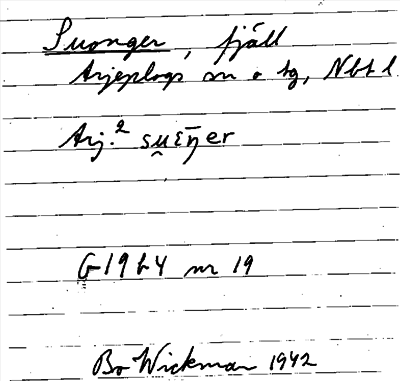 Suonger, fjäll
Arjeplogs sn o tg, Nbt l
Arj.² su̯ɛŋ̄er
G19L4 nr 19
Bo Wickman 1942